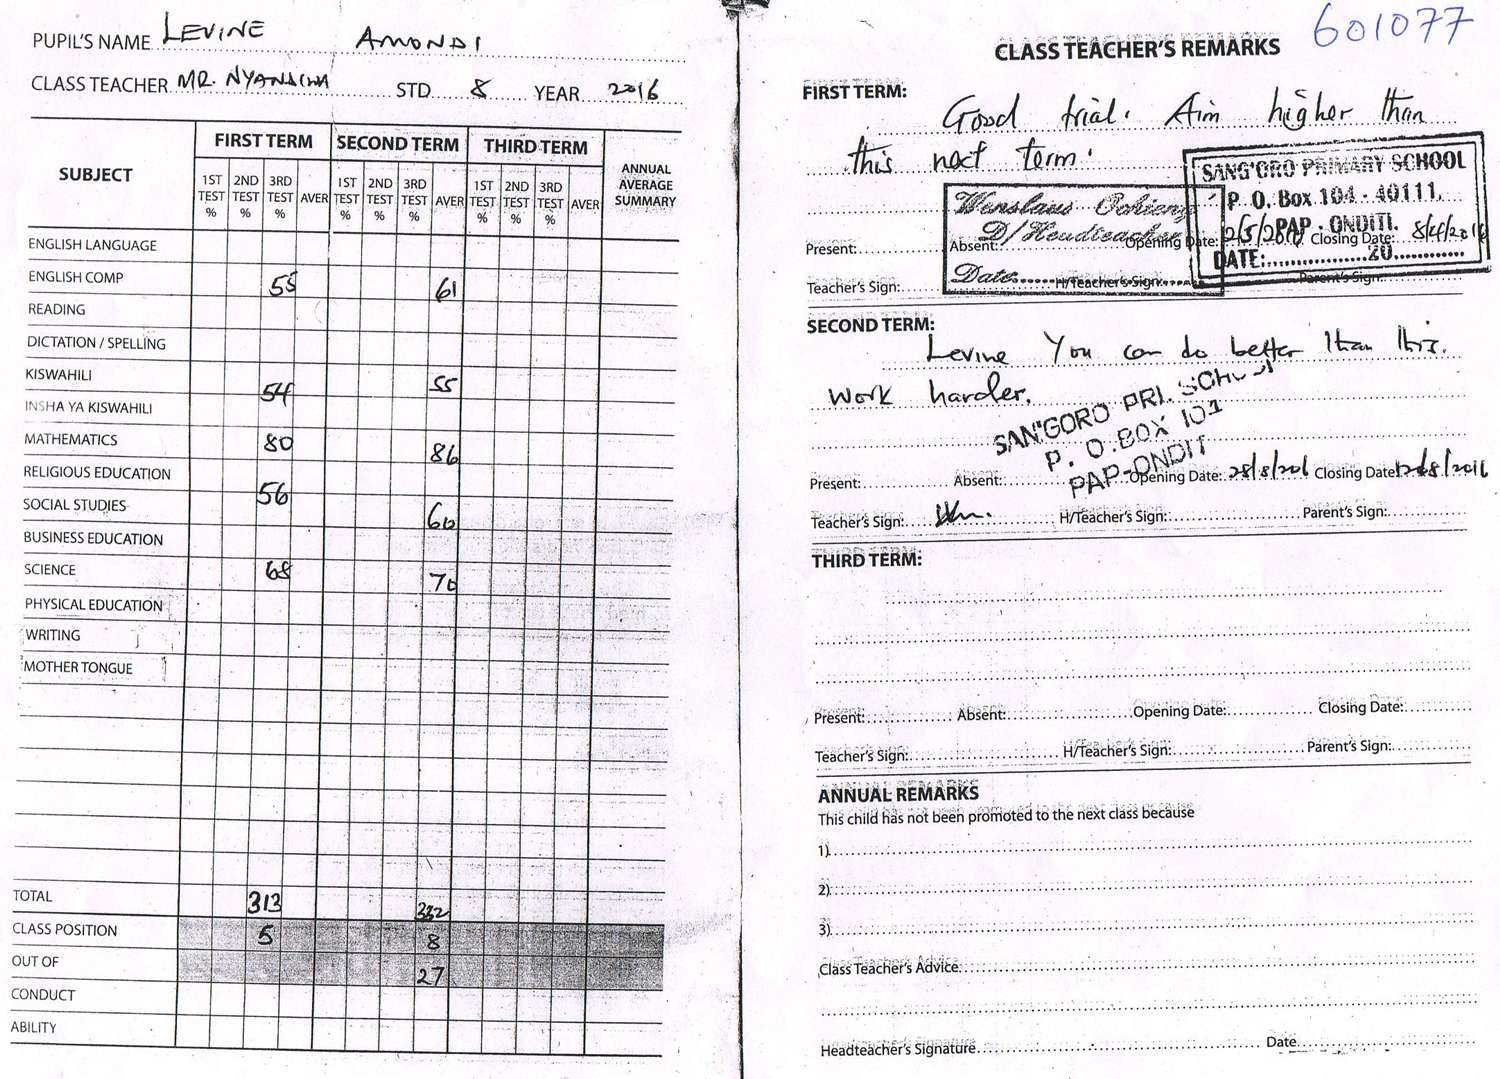 PUPIL'S NAME LEVINE AMONDI
CLASS TEACHER MR. STD 8 YEAR 2016
SUBJECT FIRST TERM SECOND TERM THIRD TERM ANNUAL AVERAGE SUMMARY
1ST TEST % 2ND TEST % 3RD TEST % AVER 1ST TEST % 2ND TEST % 3RD TEST % AVER 1ST TEST % 2ND TEST % 3RD TEST % AVER
ENGLISH LANGUAGE
ENGLISH COMP 55 61
READING
DICTATION / SPELLING
KISWAHILI 54 55
INSHA YA KISWAHILI
MATHEMATICS 80 86
RELIGIOUS EDUCATION 56
SOCIAL STUDIES 60
BUSINESS EDUCATION
SCIENCE 68 70
PHYSICAL EDUCATION
WRITING
MOTHER TONGUE
TOTAL 313 332
CLASS POSITION 5 8
OUT OF 27
CONDUCT
ABILITY
601077
CLASS TEACHER'S REMARKS
FIRST TERM:
Good trial. Aim higher than
this next term.
SANG'ORO PRIMARY SCHOOL
P. O. Box 104 - 40111,
PAP - ONDITI.
DATE: 20
Wenslaus Ochieng
D/Headteacher
Date
Present: Absent: Opening Date: 2/5/2016 Closing Date: 8/4/2016
Teacher's Sign: H/Teacher's Sign: Parent's Sign:
SECOND TERM:
Levine You can do better than this.
Work harder.
SANG'ORO PRI. SCHOOL
P. O. BOX 101
PAP-ONDIT
Present: Absent: Opening Date: 28/8/201 Closing Date: 12/8/2016
Teacher's Sign: H/Teacher's Sign: Parent's Sign:
THIRD TERM:
Present: Absent: Opening Date: Closing Date:
Teacher's Sign: H/Teacher's Sign: Parent's Sign:
ANNUAL REMARKS
This child has not been promoted to the next class because
1)
2)
3)
Class Teacher's Advice:
Headteacher's Signature Date